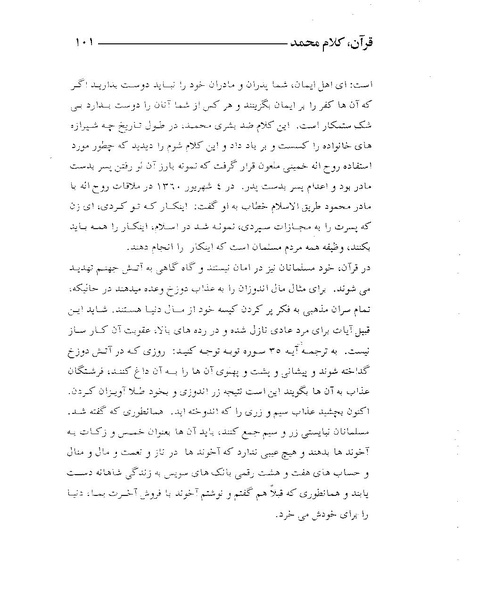 قرآن، کلام محمد ۱۰۱
است: ای اهل ایمان، شما پدران و مادران خود را نباید دوست بدارید اگر
که آن ها کفر را بر ایمان بگزینند و هر کس از شما آنان را دوست بدارد بی
شک ستمکار است. این کلام ضد بشری محمد، در طول تاریخ چه شیرازه
های خانواده را گسست و بر باد داد و این کلام شوم را دیدید که چطور مورد
استفاده روح اله خمینی ملعون قرار گرفت که نمونه بارز آن لو رفتن پسر بدست
مادر بود و اعدام پسر بدست پدر. در ۴ شهریور ۱۳۶۰ در ملاقات روح اله با
مادر محمود طریق الاسلام خطاب به او گفت: اینکار که تو کردی، ای زن
که پسرت را به مجازات سپردی، نمونه شد در اسلام، اینکار را همه باید
بکنند، وظیفه همه مردم مسلمان است که اینکار را انجام دهند.
در قرآن، خود مسلمانان نیز در امان نیستند و گاه گاهی به آتش جهنم تهدید
می شوند. برای مثال مال اندوزان را به عذاب دوزخ وعده میدهند در حالیکه،
تمام سران مذهبی به فکر پر کردن کیسه خود از مال دنیا هستند. شاید این
قبیل آیات برای مرد عادی نازل شده و در رده های بالا، عقوبت آن کار ساز
نیست. به ترجمه آیه ۳۵ سوره توبه توجه کنید: روزی که در آتش دوزخ
گداخته شوند و پیشانی و پشت و پهلوی آن ها را به آن داغ کنند، فرشتگان
عذاب به آن ها بگویند این است نتیجه زر اندوزی و بخود طلا آویزان کردن.
اکنون بچشید عذاب سیم و زری را که اندوخته اید. همانطوری که گفته شد.
مسلمانان نبایستی زر و سیم جمع کنند، باید آن ها بعنوان خمس و زکات به
آخوند ها بدهند و هیچ عیبی ندارد که آخوند ها در ناز و نعمت و مال و منال
و حساب های هفت و هشت رقمی بانک های سویس به زندگی شاهانه دست
یابند و همانطوری که قبلاً هم گفتم و نوشتم آخوند با فروش آخرت بما، دنیا
را برای خودش می خرد.